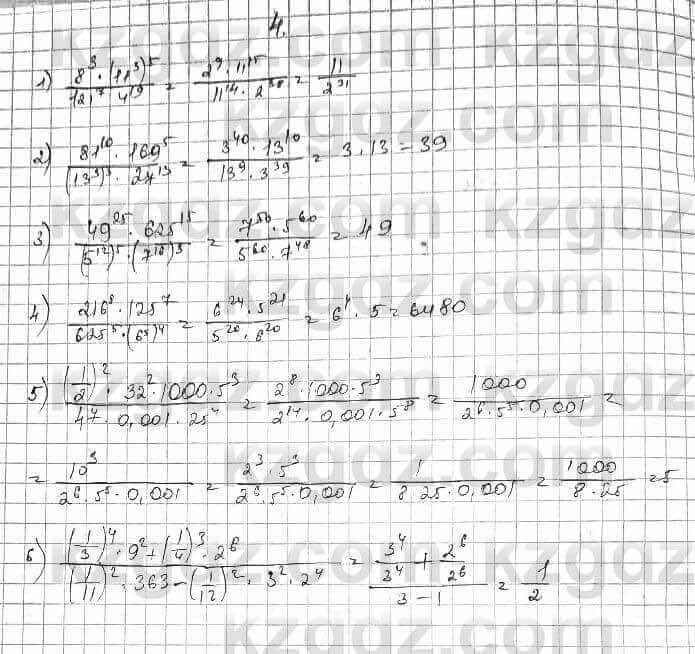 4.
1) (8^3 · (11^3)^5) / (121^7 · 4^19) = (2^9 · 11^15) / (11^14 · 2^38) = 11 / 2^31
2) (81^10 · 169^5) / ((13^3)^3 · 27^13) = (3^40 · 13^10) / (13^9 · 3^39) = 3 · 13 = 39
3) (49^25 · 625^15) / ((5^12)^5 · (7^16)^3) = (7^50 · 5^60) / (5^60 · 7^48) = 49
4) (216^8 · 125^7) / (625^5 · (6^5)^4) = (6^24 · 5^21) / (5^20 · 6^20) = 6^4 · 5 = 6480
5) ((1/2)^2 · 32^2 · 1000 · 5^3) / (4^7 · 0,001 · 25^4) = (2^8 · 1000 · 5^3) / (2^14 · 0,001 · 5^8) = 1000 / (2^6 · 5^5 · 0,001) =
= 10^3 / (2^6 · 5^5 · 0,001) = (2^3 · 5^3) / (2^6 · 5^5 · 0,001) = 1 / (8 · 25 · 0,001) = 1000 / (8 · 25) = 5
6) ((1/3)^4 · 9^2 + (1/4)^3 · 2^6) / ((1/11)^2 · 363 - (1/12)^2 · 3^2 · 2^4) = (3^4/3^4 + 2^6/2^6) / (3 - 1) = 1/2
kzgdz.com